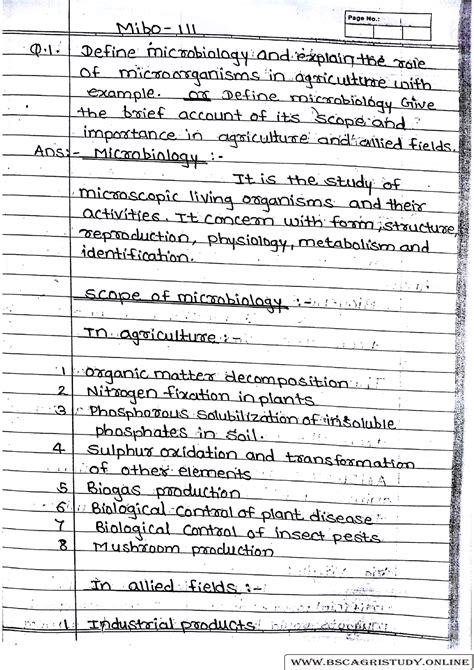 Mibo-111
Page No.:
Q.1. Define microbiology and explain the role
of microorganisms in agriculture with
example. or Define microbiology Give
the brief account of its scope and
importance in agriculture and allied fields.
Ans:- Microbiology :-
It is the study of
microscopic living organisms and their
activities. It concern with form, structure,
reproduction, physiology, metabolism and
identification.
scope of microbiology :-
In agriculture :-
1 organic matter decomposition
2 Nitrogen fixation in plants
3 Phosphorous solubilization of insoluble
phosphates in soil.
4 Sulphur oxidation and transformation
of other elements
5 Biogas production
6 Biological control of plant disease
7 Biological control of insect pests
8 Mushroom production
In allied fields :-
1 Industrial products
WWW.BSCAGRISTUDY.ONLINE